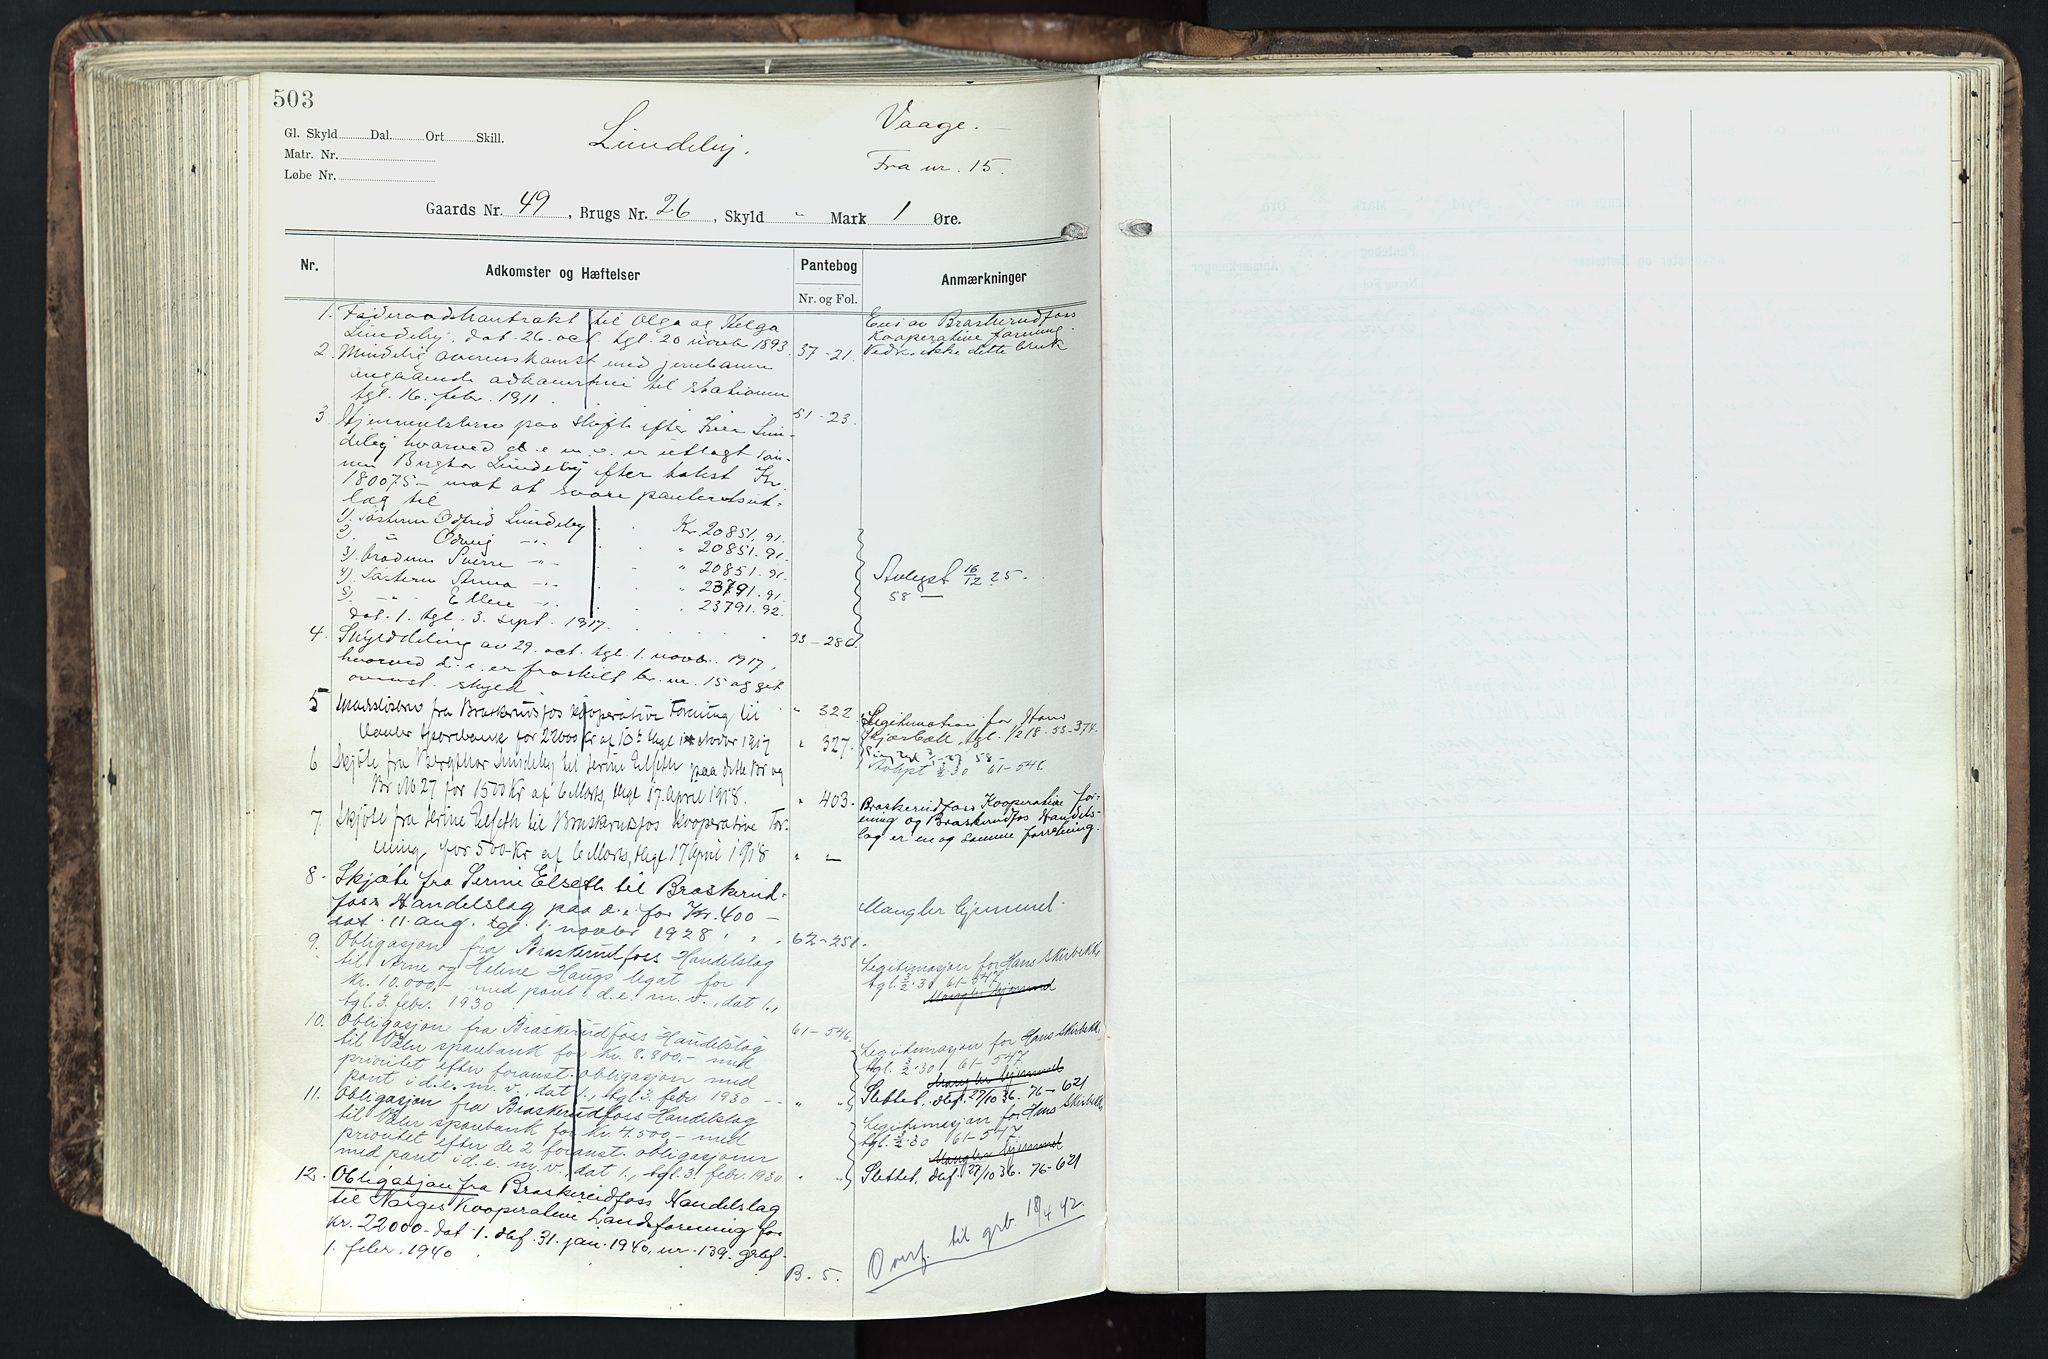 503
Vaage.
Gl. Skyld Dal. Ort Skill.
Lundeby.
Matr. Nr.
Fra nr. 15.
Løbe Nr.
Gaards Nr. 49, Brugs Nr. 26, Skyld " Mark 1 Øre.
Nr.
Adkomster og Hæftelser
Pantebog
Nr. og Fol.
Anmærkninger
1. Føderaadskontrakt til Olga og Helga
Lundeby, dat. 26. oct. tgl. 20 novbr 1893. 37-21.
Eies av Braskerudfoss
Kooperative forening.
Vedk. ikke dette bruk
2. Mindelig overenskomst med jernbanen
angaaende adkomstvei til stationen
tgl. 16. febr. 1911. 51-23.
3. Hjemmelsbrev paa skifte efter Iver Lun-
deby hvorved d. e. m. v. er utlagt søn-
nen Bergthor Lundeby efter takst Kr.
18007.5- mot at svare panteretsut-
læg til
1). Søsteren Odfrid Lundeby Kr. 20851.91.
2). " Odveig -"- " 20851.91.
3) broderen Sverre -"- " 20851.91.
4). Søsteren Anna -"- " 23791.91.
5). -"- Ellen -"- " 23791.92.
dat. 1. tgl. 3. sept. 1917. 53-286.
Avlyst 16/12 25.
58 —
4. Skylddeling av 29. oct. tgl. 1. novbr. 1917,
hvorved d. e. er fraskilt br. nr. 15 og git
ovenst. skyld " 322.
5 fra Braskerudfos kooperative Forening til
Vaaler Sparebank for 22000 Kr af 10 tlgt Novbr 1917 " 327.
Legitimation for Hans
tgl. 1/2 18. 53-374.
58-
Avlyst 3/2 30 61-546.
6 Skjøte fra Bergthor Lundeby til Serine Elseth paa dette Br og
Br No 27 for 1500 Kr af 6 Marts, tlgt 17. April 1918. " 403.
7 Skjøte fra Serine Elseth til Braskerudfos kooperative For-
ening, for 500 Kr af 6 Marts, tlgt 17 April 1918 " —
Braskerudfoss Kooperative for-
ening og Braskerudfos Handels-
lag er en og samme forretning.
8. Skjøte fra Serine Elseth til Braskerud-
foss Handelslag paa d. e. for Kr. 400 -
dat. 11. aug. tgl. 1. novbr 1928. 62-251.
Mangler hjemmel.
9. Obligasjon fra Braskerudfoss Handelslag
til Arne og Helene Haugs legat for
kr. 10.000,- med pant i d. e. m. v., dat 1.,
tgl. 3. febr. 1930 61-546.
Legitimasjon for Hans Skirbekk,
tgl. 3/2.30 61-547
Mangler hjemmel
10. Obligasjon fra Braskerudfoss Handelslag
til Våler sparebank for kr. 8.800,- med
prioritet efter foranst. obligasjon med
pant i d. e. m. v., dat 1., tgl 3. febr. 1930 - " "
Legitimasjon for Hans Skirbekk,
tgl. 3/2.30 61-547
Mangler hjemmel
Slettet. dbf. 27/10 36. 76-621
11. Obligasjon fra Braskerudfoss Handelslag
til Våler sparebank for kr. 4.500,- med
prioritet efter de 2 foranst. obligasjoner
med pant i d. e. m. v., dat 1., tgl 3. febr. 1930 " "
Legitimasjon for Hans Skirbekk,
tgl. 3/2.30 61-547
Mangler hjemmel
Slettet. dbf 27/10 36. 76-621
12. Obligasjon fra Braskerudfoss Handelslag
til Norges Kooperative Landsforening for
kr. 22000- dat. 1. dbf. 31. jan. 1940, nr. 139. grbf.
1. febr. 1940 B. 5.
Overf. til grb. 18/4 42.